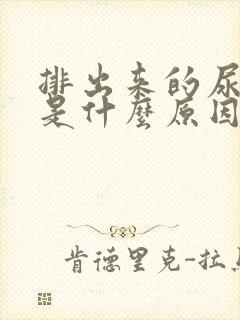 排出来的尿
是什麼原因
肯德里克-拉